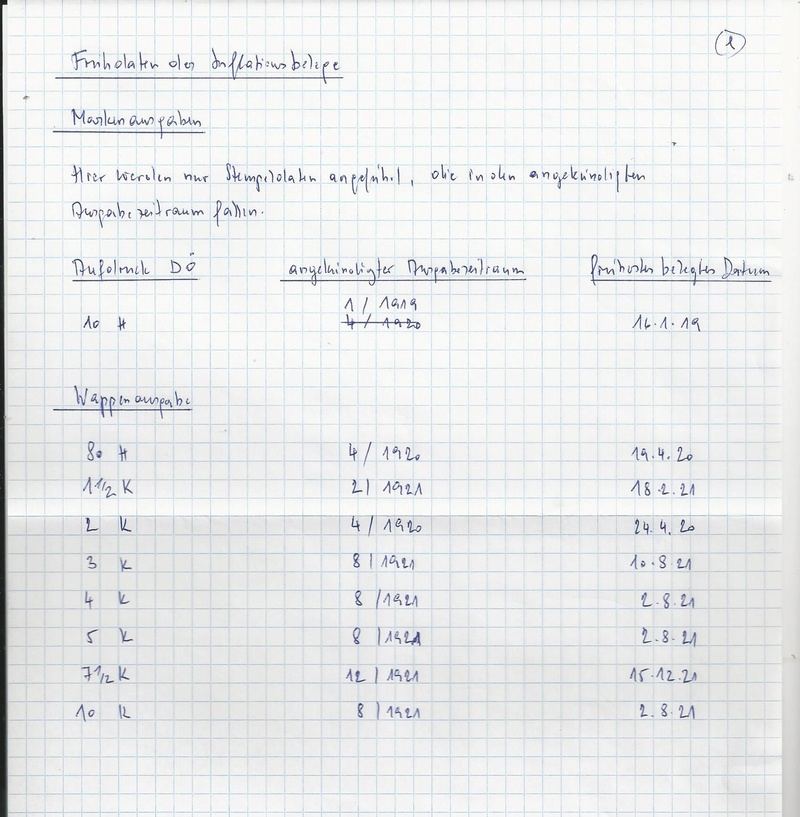 1
Frühdaten der Inflationsbelege
Markenausgaben
Hier werden nur Stempeldaten angeführt, die in den angekündigten
Ausgabezeitraum fallen.
Aufdruck DÖ angekündigter Ausgabezeitraum frühester belegtes Datum
1 / 1919
10 H 4 / 1920 16.1.19
Wappenausgabe
80 H 4 / 1920 19.4.20
1 1/2 K 2 / 1921 18.2.21
2 K 4 / 1920 24.4.20
3 K 8 / 1921 10.8.21
4 K 8 / 1921 2.8.21
5 K 8 / 1921 2.8.21
7 1/2 K 12 / 1921 15.12.21
10 K 8 / 1921 2.8.21